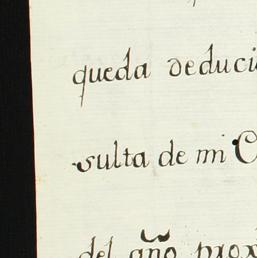 queda deduci
sulta de mi C
del año prox